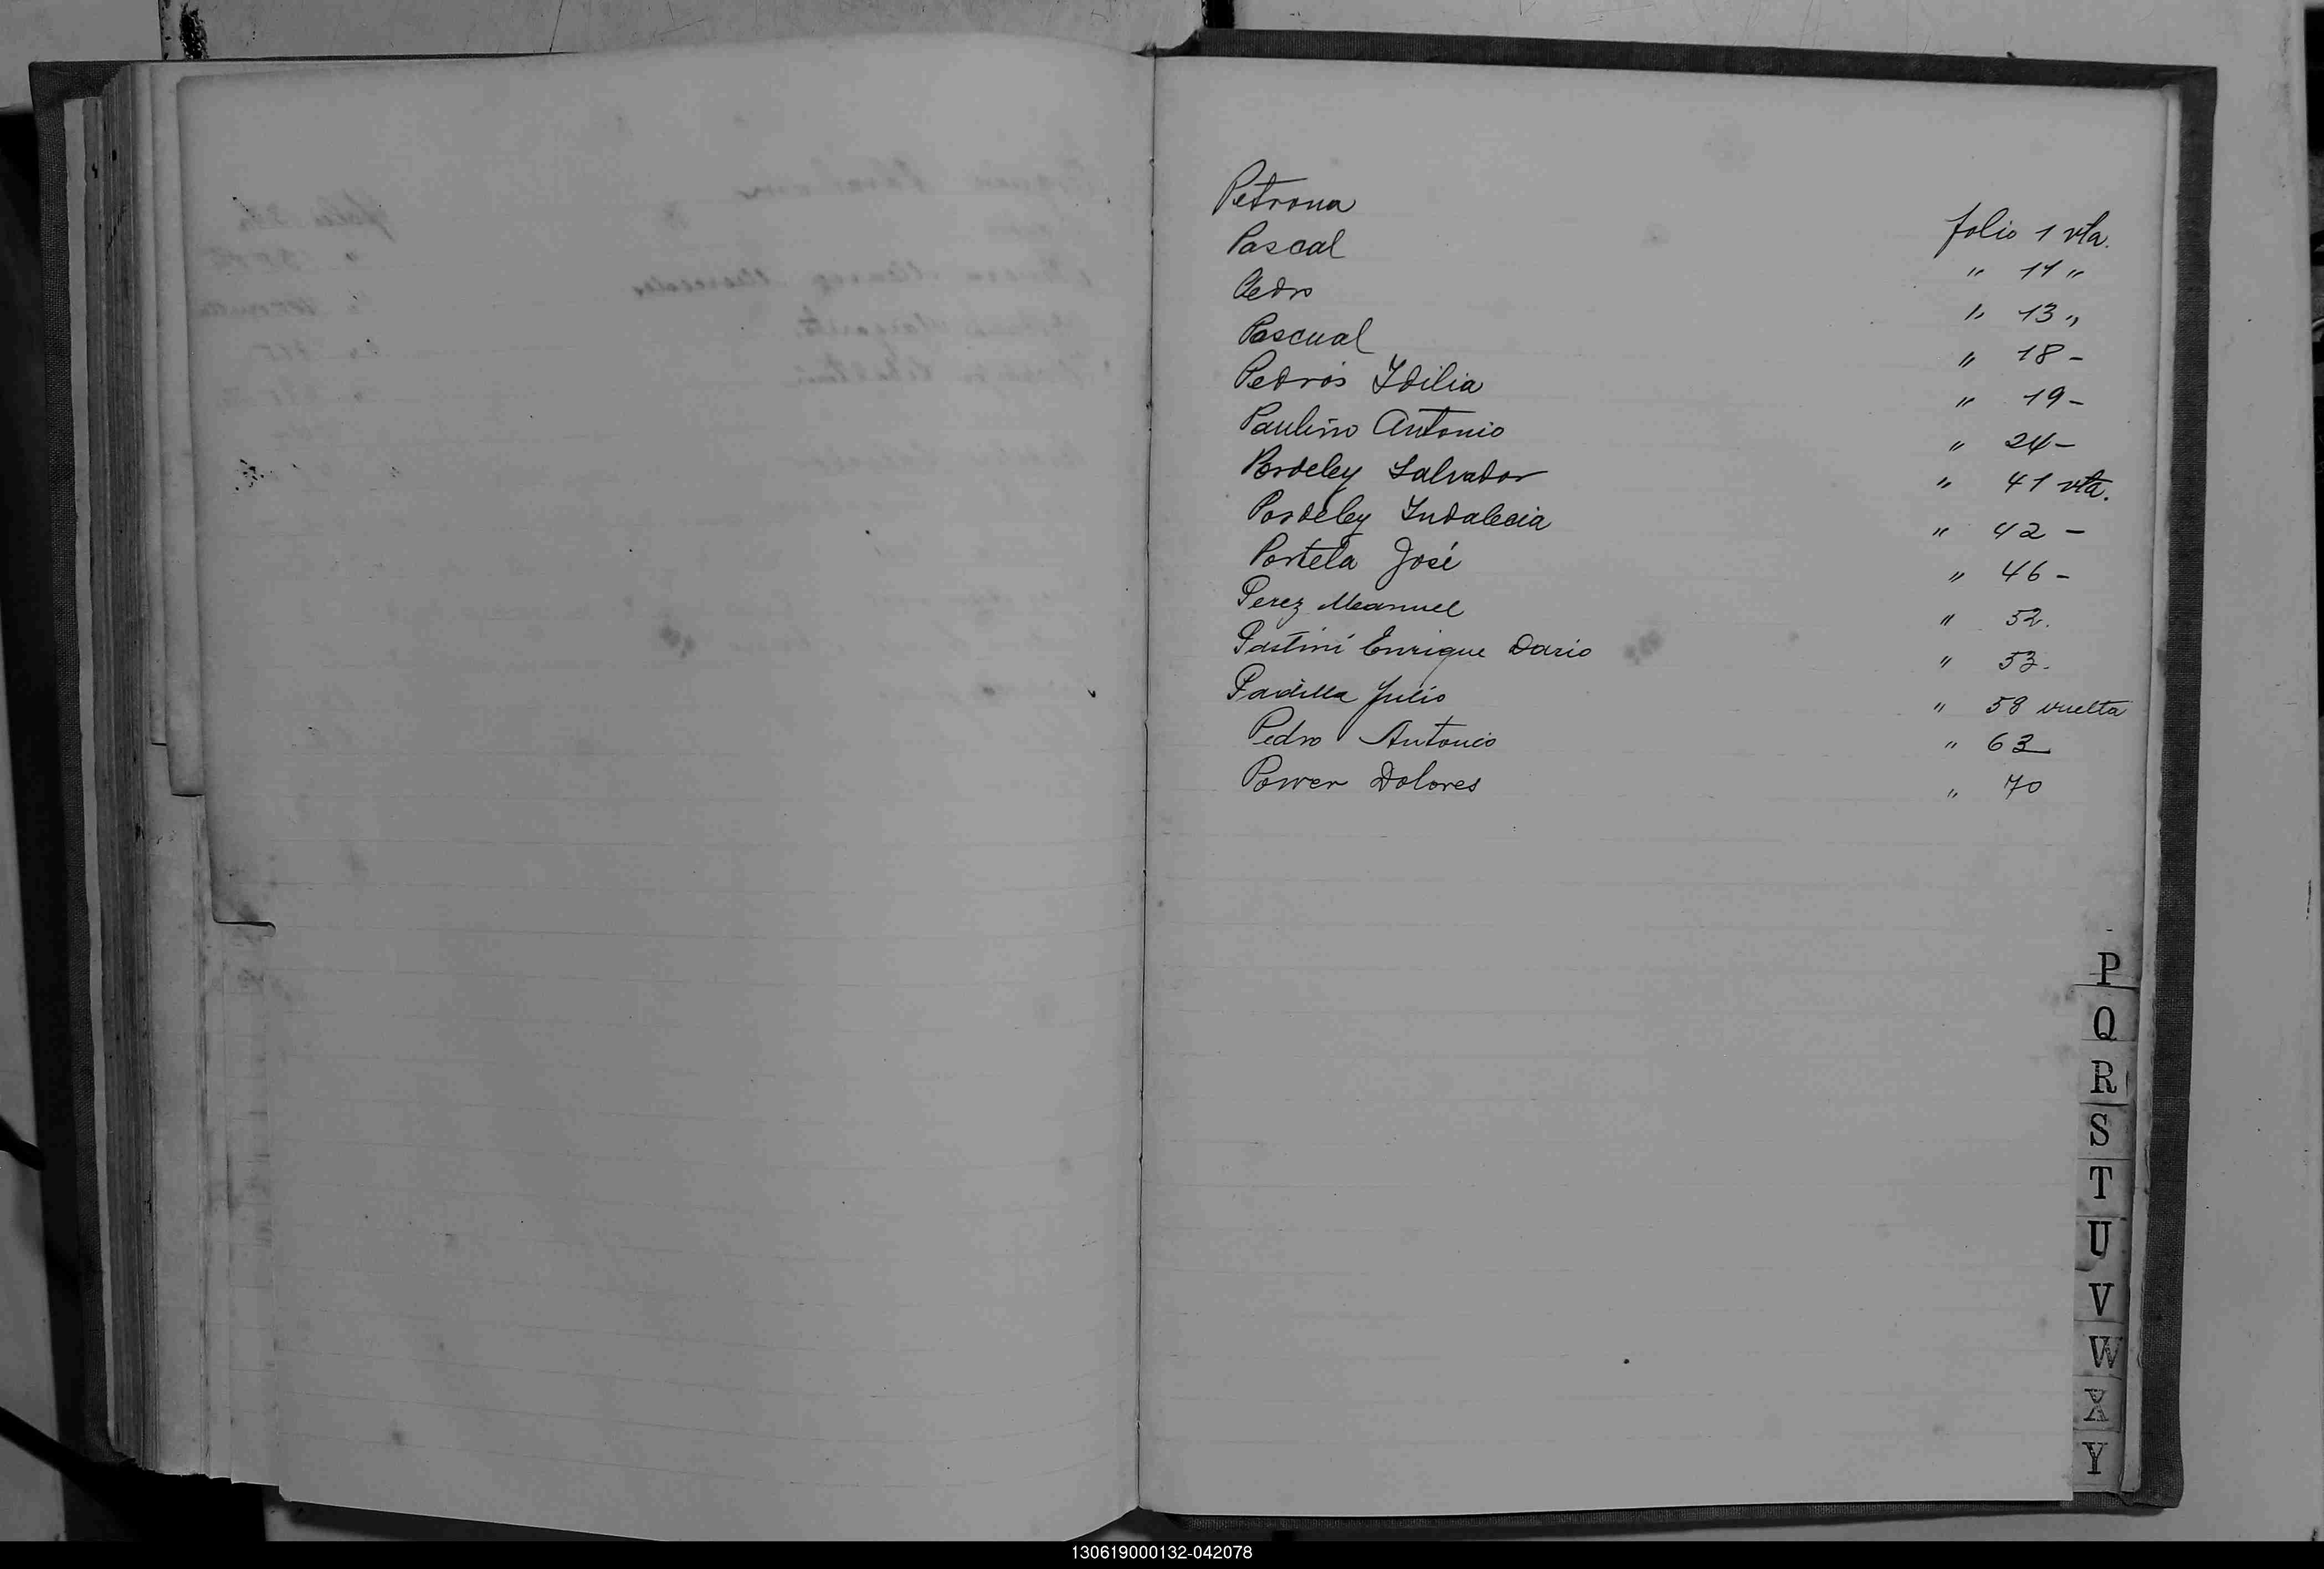 Petrona folio 1 vta.
Pascal " 11 "
Pedro " 13 "
Pascual " 18 -
Pedrós Idilia " 19 -
Paulino Antonio " 24 -
Pordeley Salvador " 41 vta.
Pordeley Indalecia " 42 -
Portela José " 46 -
Perez Manuel " 52.
Pastini Enrique Dario " 53.
Padilla Julio " 58 vuelta
Pedro Antonio " 63
Power Dolores " 70
P
Q
R
S
T
U
V
W
X
Y
130619000132-042078